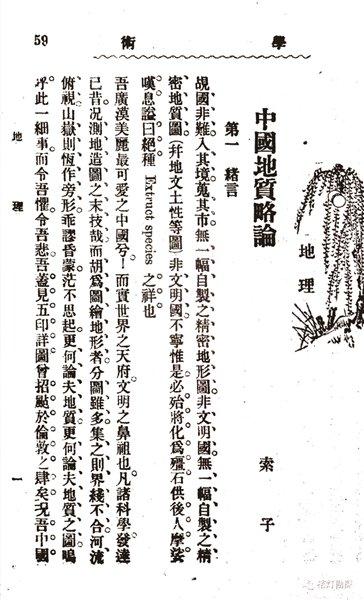 學術
59
地理
中國地質略論
索子
第一 緒言
覘國非難入其境蒐其市無一幅自製之精密地形圖非文明國無一幅自製之精
密地質圖(幷地文土性等圖)非文明國不寧惟是必殆將化爲殭石供後人摩挲
嘆息諡曰絕種 Extruct species 之祥也
吾廣漠美麗最可愛之中國兮!而實世界之天府文明之鼻祖也凡諸科學發達
已昔況測地造圖之末技哉而胡爲圖繪地形者分圖雖多集之則界綫不合河流
俯視山嶽則恆作旁形乖謬昏蒙茫不思起更何論夫地質更何論夫地質之圖嗚
呼此一細事而令吾懼令吾悲吾蓋見五印詳圖曾招颭於倫敦之肆矣況吾中國
地理
一